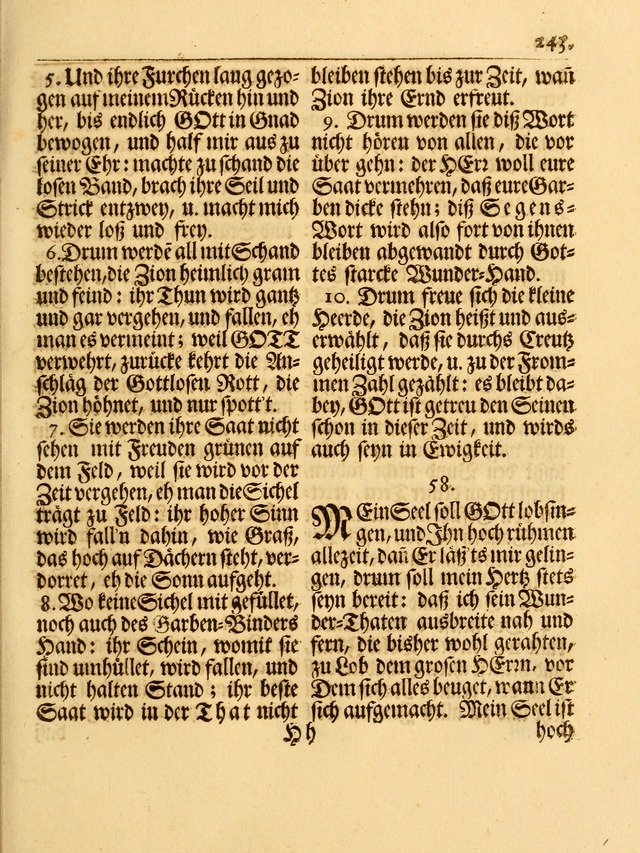 243.
5. Und ihre Furchen lang gezo-
gen auf meinem Rücken hin und
her, bis endlich GOtt in Gnad
bewogen, und half mir aus zu
seiner Ehr: machte zu schand die
losen Band, brach ihre Seil und
Strick entzwey, u. macht mich
wieder loß und frey.
6. Drum werdẽ all mit Schand
bestehen, die Zion heimlich gram
und feind: ihr Thun wird gantz
und gar vergehen, und fallen, eh
man es vermeint; weil GOTT
verwehrt, zurücke kehrt die An-
schläg der Gottlosen Rott, die
Zion höhnet, und nur spott't.
7. Sie werden ihre Saat nicht
sehen mit Freuden grünen auf
dem Feld, weil sie wird vor der
Zeit vergehen, eh man die Sichel
trägt zu Feld: ihr hoher Sinn
wird fall'n dahin, wie Graß,
das hoch auf Dächern steht, ver-
dorret, eh die Sonn aufgeht.
8. Wo keine Sichel mit gefüllet,
noch auch des Garben-Binders
Hand: ihr Schein, womit sie
sind umhüllet, wird fallen, und
nicht halten Stand; ihr beste
Saat wird in der That nicht
bleiben stehen bis zur Zeit, wañ
Zion ihre Ernd erfreut.
9. Drum werden sie diß Wort
nicht hören von allen, die vor
über gehn: der HErr woll eure
Saat vermehren, daß eure Gar-
ben dicke stehn; diß Segens-
Wort wird also fort von ihnen
bleiben abgewandt durch Got-
tes starcke Wunder-Hand.
10. Drum freue sich die kleine
Heerde, die Zion heißt und aus-
erwählt, daß sie durchs Creutz
geheiligt werde, u. zu der From-
men Zahl gezählt: es bleibt da-
bey, GOtt ist getreu den Seinen
schon in dieser Zeit, und wirds
auch seyn in Ewigkeit.
58.
MEin Seel soll GOtt lobsin-
gen, und Ihn hoch rühmen
allezeit, dañ Er läßts mir gelin-
gen, drum soll mein Hertz stets
seyn bereit: daß ich sein Wun-
der-Thaten ausbreite nah und
fern, die bisher wohl gerahten,
zu Lob dem grosen HErrn, vor
Dem sich alles beuget, wann Er
sich aufgemacht. Mein Seel ist
Hh
hoch